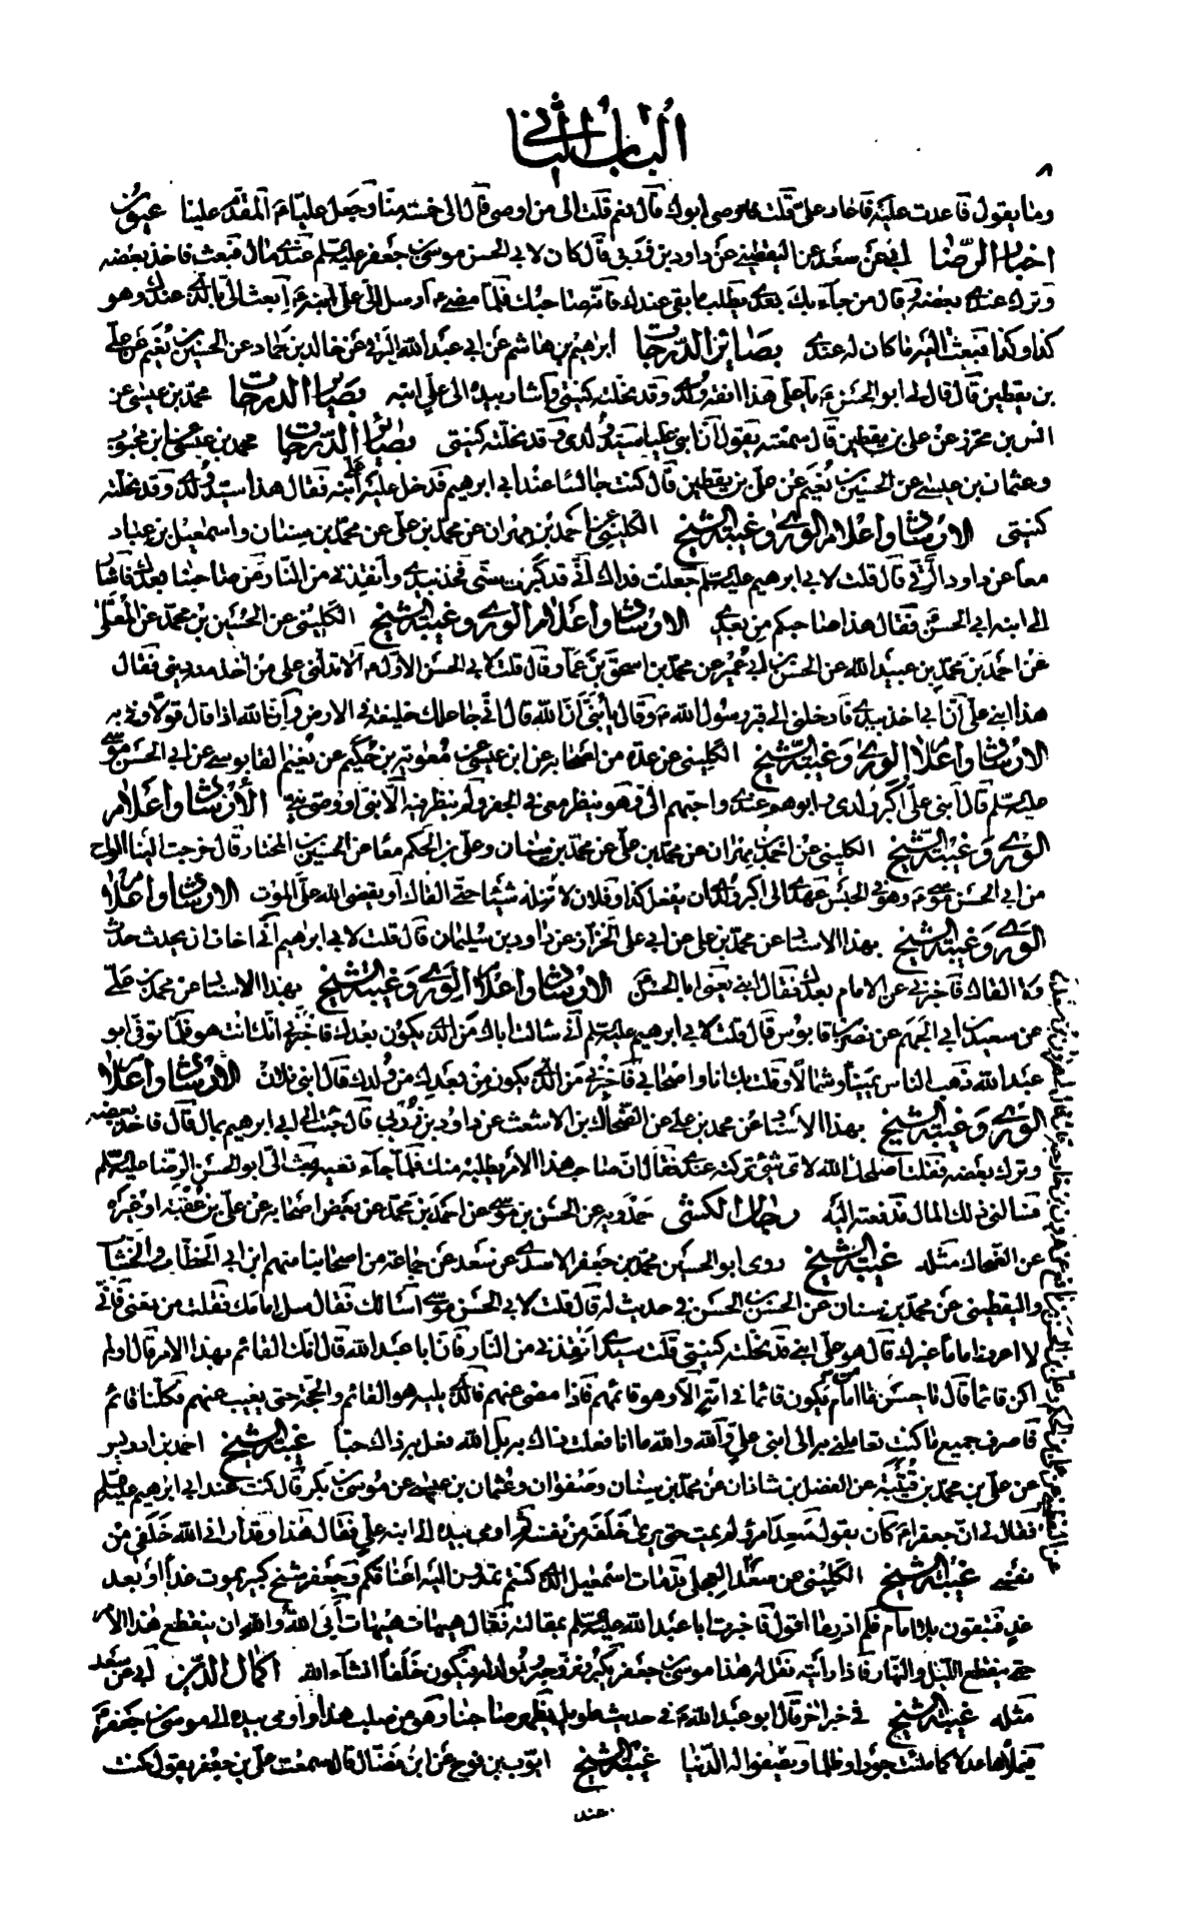 الباب الثاني
٨
وما يقول فاعدت عليه فاعاد علي قلت فاوصى ابوك قال نعم قلت الى من اوصى قال الى خمسة منا وجعل عليا ع المقدم علينا عيون
اخبار الرضا ابي عن سعد عن اليقطيني عن داود بن زربي قال كان لابي الحسن موسى بن جعفر عليه السلم عندي مال فبعث فاخذ بعضه
وترك عندي بعضه وقال من جاءك بعدي يطلب ما بقي عندك فانه صاحبك فلما مضى ع ارسل الي علي ابنه ع ابعث الي بالذي عندك وهو
كذا وكذا فبعثت اليه ما كان له عندي بصائر الدرجات ابراهيم بن هاشم عن ابي عبد الله البرقي عن خالد بن حماد عن الحسين بن نعيم عن علي
بن يقطين قال قال لي ابو الحسن ع يا علي هذا افقه ولدي وقد نحلته كنيتي واشار بيده الى علي ابنه بصائر الدرجات محمد بن عيسى عن
انس بن محرز عن علي بن يقطين قال سمعته يقول ان ابني عليا سيد ولدي وقد نحلته كنيتي بصائر الدرجات محمد بن عيسى عن ابن محبوب
وعثمان بن عيسى عن الحسين بن نعيم عن علي بن يقطين قال كنت جالسا عند ابي ابرهيم فدخل عليه علي ابنه فقال هذا سيد ولدي وقد نحلته
كنيتي الارشاد واعلام الورى وغيبة الشيخ الكليني عن احمد بن مهران عن محمد بن علي عن محمد بن سنان واسمعيل بن عباد
معا عن داود الرقي قال قلت لابي ابرهيم عليه السلم جعلت فداك اني قد كبرت سني فخذ بيدي وانقذني من النار من صاحبنا بعدك فاشار
الى ابنه ابي الحسن فقال هذا صاحبكم من بعدي الارشاد واعلام الورى وغيبة الشيخ الكليني عن الحسين بن محمد عن المعلى
عن احمد بن محمد بن عبيد الله عن الحسن بن ابي عمير عن محمد بن اسحق بن عمار قال قلت لابي الحسن الاول ع الا تدلني على من اخذ منه ديني فقال
هذا ابني علي ان ابي اخذ بيدي فادخلني الى قبر رسول الله ص وقال يا بني ان الله قال اني جاعل خليفة في الارض وان الله اذا قال قولا وفى به
الارشاد واعلام الورى وغيبة الشيخ الكليني عن عدة من اصحابه عن ابن عيسى عن معوية بن حكيم عن نعيم القابوسي عن ابي الحسن موسى
عليه السلم قال ابني علي اكبر ولدي وابرهم عندي واحبهم الي وهو ينظر معي في الجفر ولم ينظر فيه الا نبي او وصي نبي الارشاد واعلام
الورى وغيبة الشيخ الكليني عن احمد بن مهران عن محمد بن علي عن محمد بن سنان وعلي بن الحكم معا عن الحسين بن المختار قال خرجت الينا الواح
من ابي الحسن موسى ع وهو في الحبس عهدي الى اكبر ولدي ان يفعل كذا وفلان لا تنله شيئا حتى القاك او يقضي الله علي الموت الارشاد واعلام
الورى وغيبة الشيخ بهذا الاسناد عن محمد بن علي عن ابي علي الخزاز عن داود بن سليمان قال قلت لابي ابرهيم اني اخاف ان يحدث حدث
ولا القاك فاخبرني عن الامام بعدك فقال ابني يعني ابا الحسن الارشاد واعلام الورى وغيبة الشيخ بهذا الاسناد عن محمد بن علي
عن سعيد بن ابي الجهم عن نصر بن قابوس قال قلت لابي ابرهيم عليه السلم اني سالت اباك من الذي يكون بعدك فاخبرني انك انت هو فلما توفي ابو
عبد الله ذهب الناس يمينا وشمالا وقلت بك انا واصحابي فاخبرني من الذي يكون من بعدك من ولدك قال ابني فلان الارشاد واعلام
الورى وغيبة الشيخ بهذا الاسناد عن محمد بن علي عن الضحاك بن الاشعث عن داود بن زربي قال جئت الى ابي ابرهيم بمال قال فاخذ بعضه
وترك بعضه فقلت اصلحك الله لاي شئ تركته عندي فقال ان صاحب هذا الامر يطلبه منك فلما جاء نعيه بعث الي ابو الحسن الرضا عليه السلم
فسالني ذلك المال فدفعته اليه رجال الكشي حمدويه عن الحسن بن موسى عن احمد بن محمد عن بعض اصحابه عن علي بن عقبة او غيره
عن الضحاك مثله غيبة الشيخ روى ابو الحسين محمد بن جعفر الاسدي عن سعد عن جماعة من اصحابنا منهم ابن ابي الخطاب والخشاب
واليقطيني عن محمد بن سنان عن الحسن بن الحسن في حديث له قال قلت لابي الحسن موسى اسالك فقال سل امامك فقلت من تعني فاني
لا اعرف اماما غيرك قال هو علي ابني قد نحلته كنيتي قلت سيدي انقذني من النار فان ابا عبد الله قال انك القائم بهذا الامر قال اولم
اكن قائما قال يا حسن ما من امام يكون قائما في امة الا وهو قائمهم فاذا مضى عنهم فالذي يليه هو القائم والحجة حتى يغيب عنهم فكلنا قائم
فاصرف جميع ما كنت تعاملني به الى ابني علي والله والله ما انا فعلت ذاك به بل الله فعل به ذاك حبا غيبة الشيخ احمد بن ادريس
عن علي بن محمد بن قتيبة عن الفضل بن شاذان عن محمد بن سنان وصفوان وعثمان بن عيسى عن موسى بن بكر قال كنت عند ابي ابرهيم عليه السلم
فقال لي ان جعفرا ع كان يقول سعد امرؤ لم يمت حتى يرى خلفه من نفسه ثم اومى بيده الى ابنه علي فقال هذا وقد اراني الله خلفي من
نفسي غيبة الشيخ الكليني عن سعد الجهل قد مات اسمعيل الذي كنتم تمدون اليه اعناقكم وجعفر شيخ كبير يموت غدا او بعد
غد فتبقون بلا امام فلم ادر ما اقول فاخبرت ابا عبد الله عليه السلم بمقالته فقال هيهات هيهات ابى الله والله ان ينقطع هذا الامر
حتى ينقطع الليل والنهار فاذا رايته فقل له هذا موسى بن جعفر يكبر ونزوجه ويولد له فيكون خلفا انشاء الله اكمال الدين ابي عن سعد
مثله غيبة الشيخ في خبر اخر قال ابو عبد الله ع في حديث طويل يظهر صاحبنا وهو من صلب هذا واومى بيده الى موسى بن جعفر ع
فيملاها عدلا كما ملئت جورا وظلما ويصفو له الدنيا غيبة الشيخ ايوب بن نوح عن ابن فضال قال سمعت علي بن جعفر يقول كنت
عند